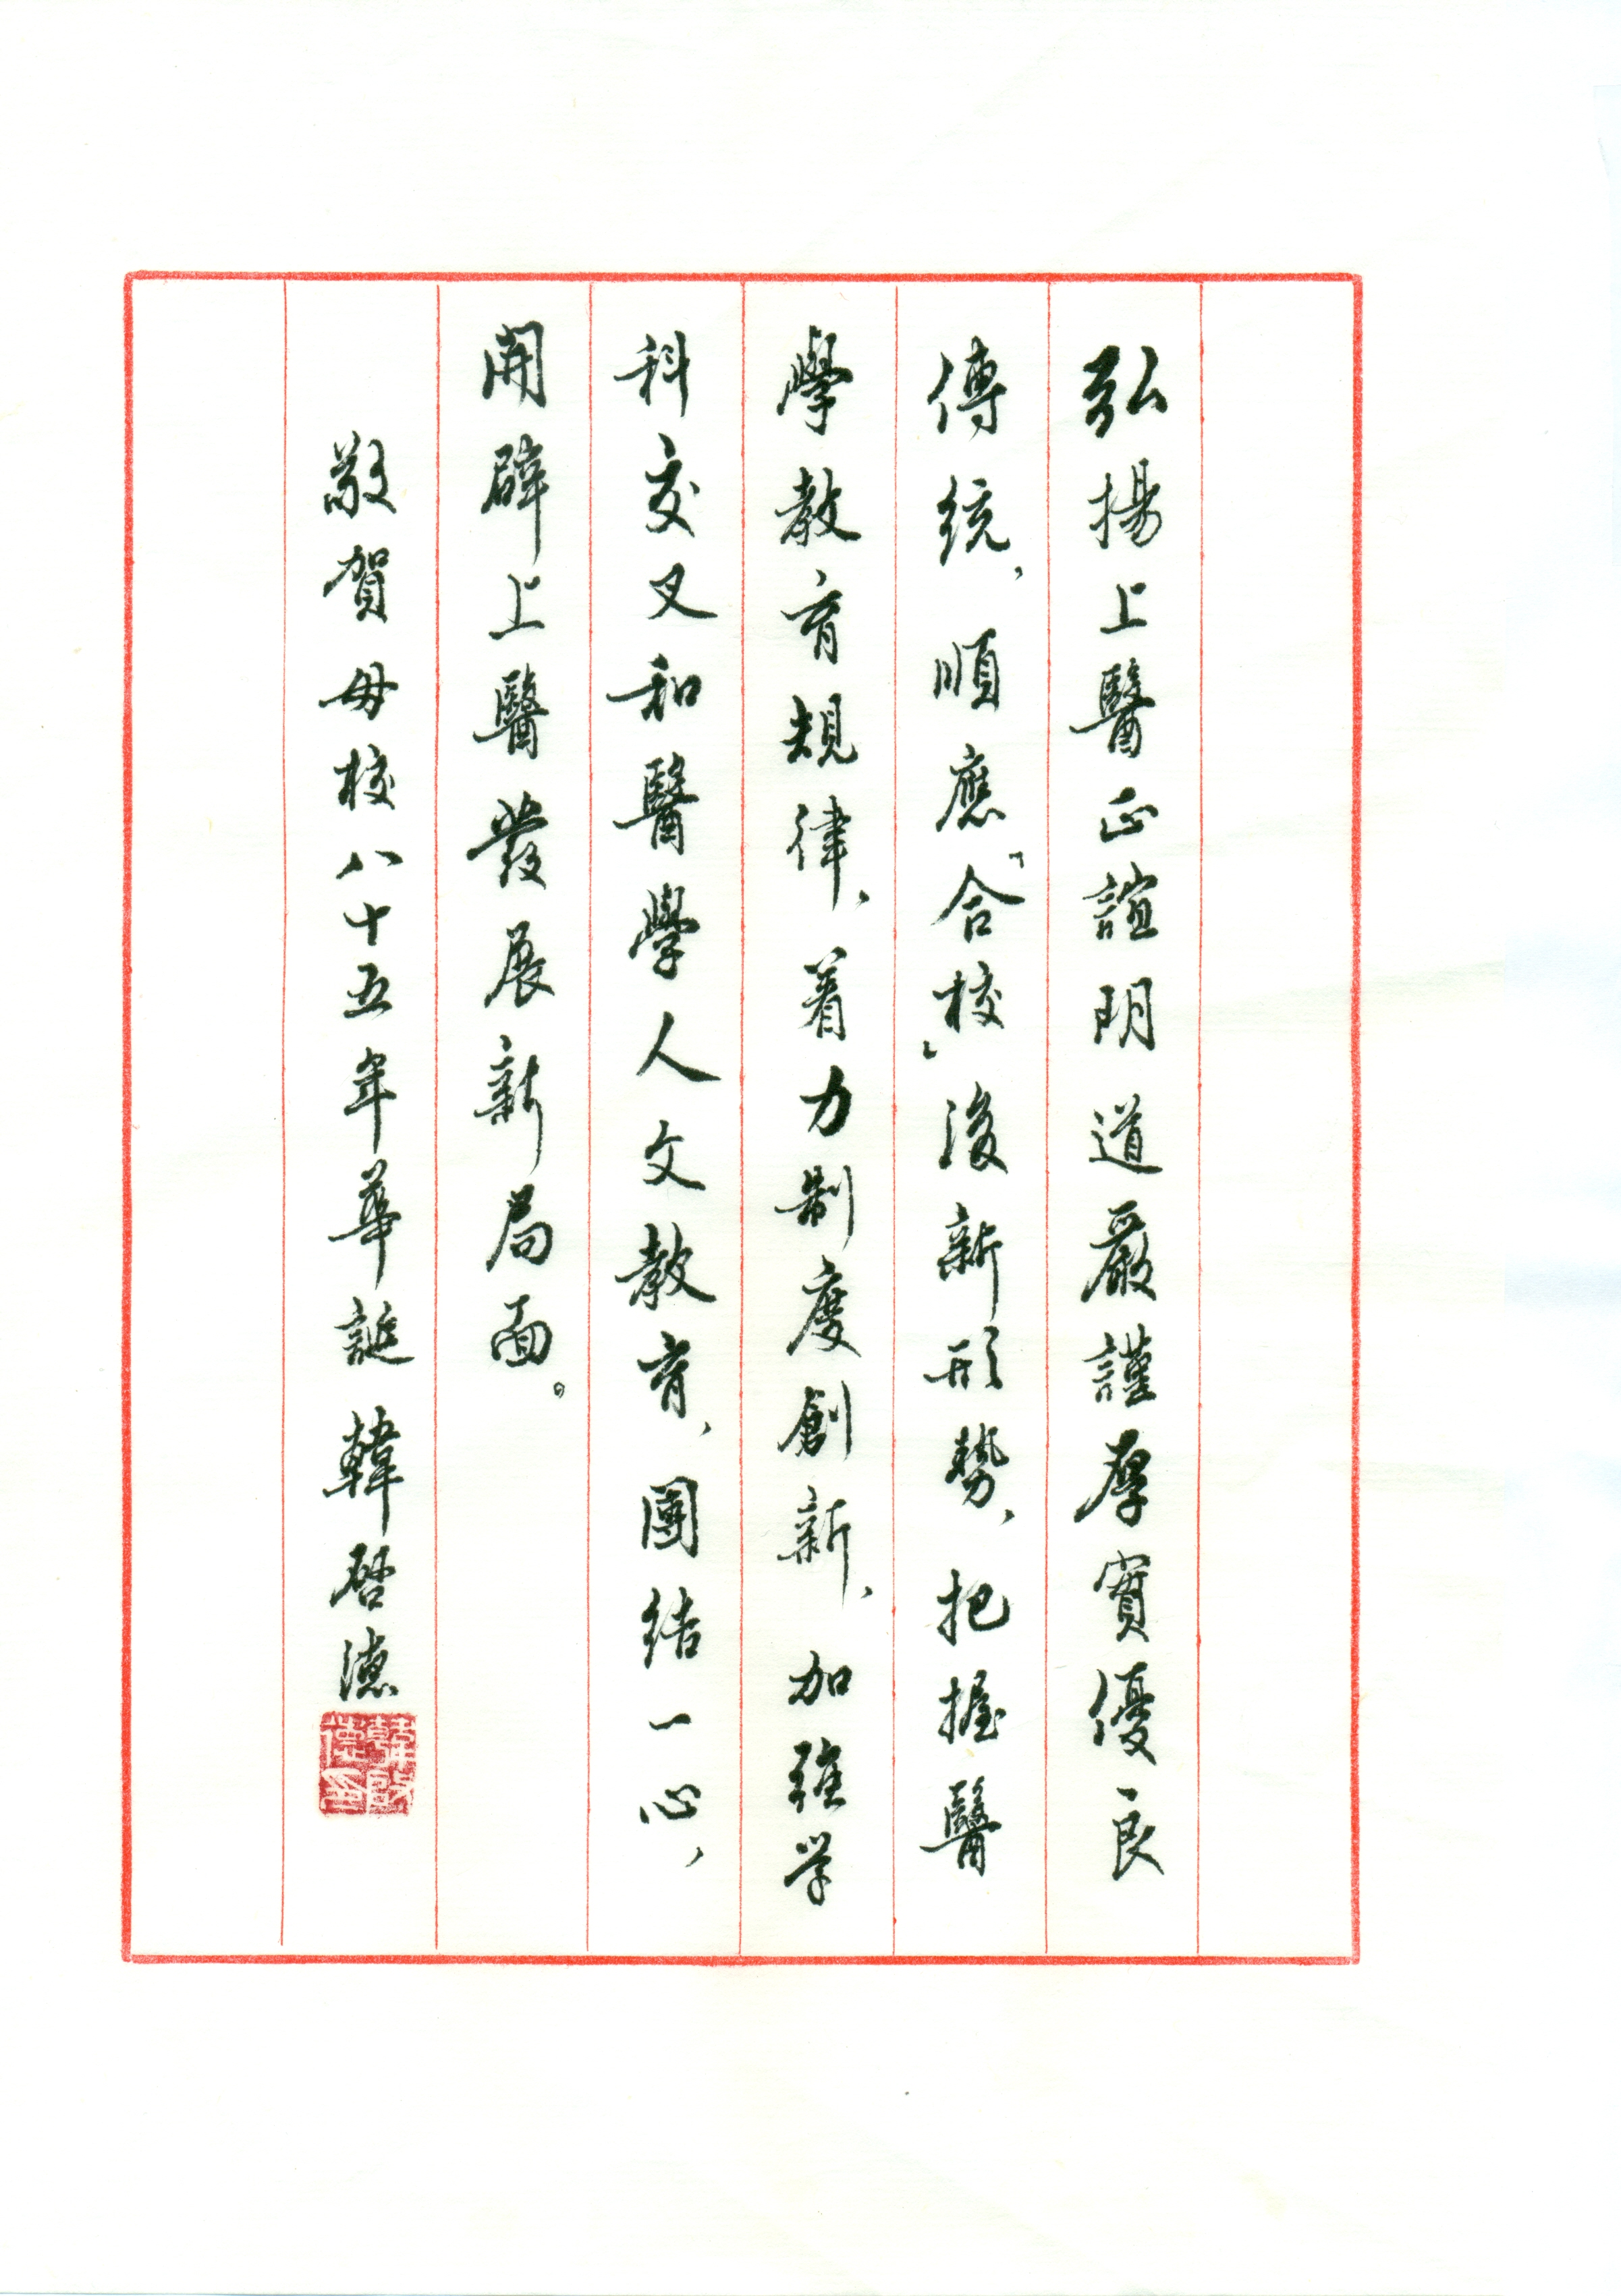 弘揚上醫正誼明道嚴謹厚實優良
傳統，順應「合校」後新形勢，把握醫
學教育規律，着力制度創新，加強学
科交叉和醫學人文教育，團結一心，
開辟上醫發展新局面。
敬賀母校八十五年華誕 韓啓德
韓啟
德印